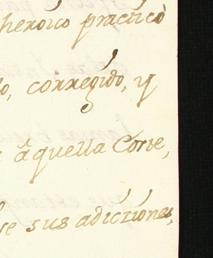 heroico practicò
corregido, y
âquella Corte,
sus adiciones,